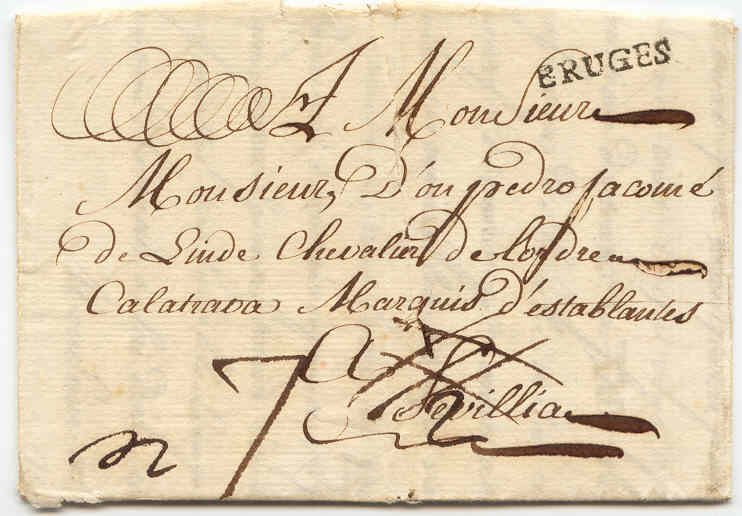 BRUGES
A Monsieur
Monsieur, D'on pedro Jacomé
de Linde Chevalier de l'ordre
Calatrava Marquis d'establantes
a
Sevillia